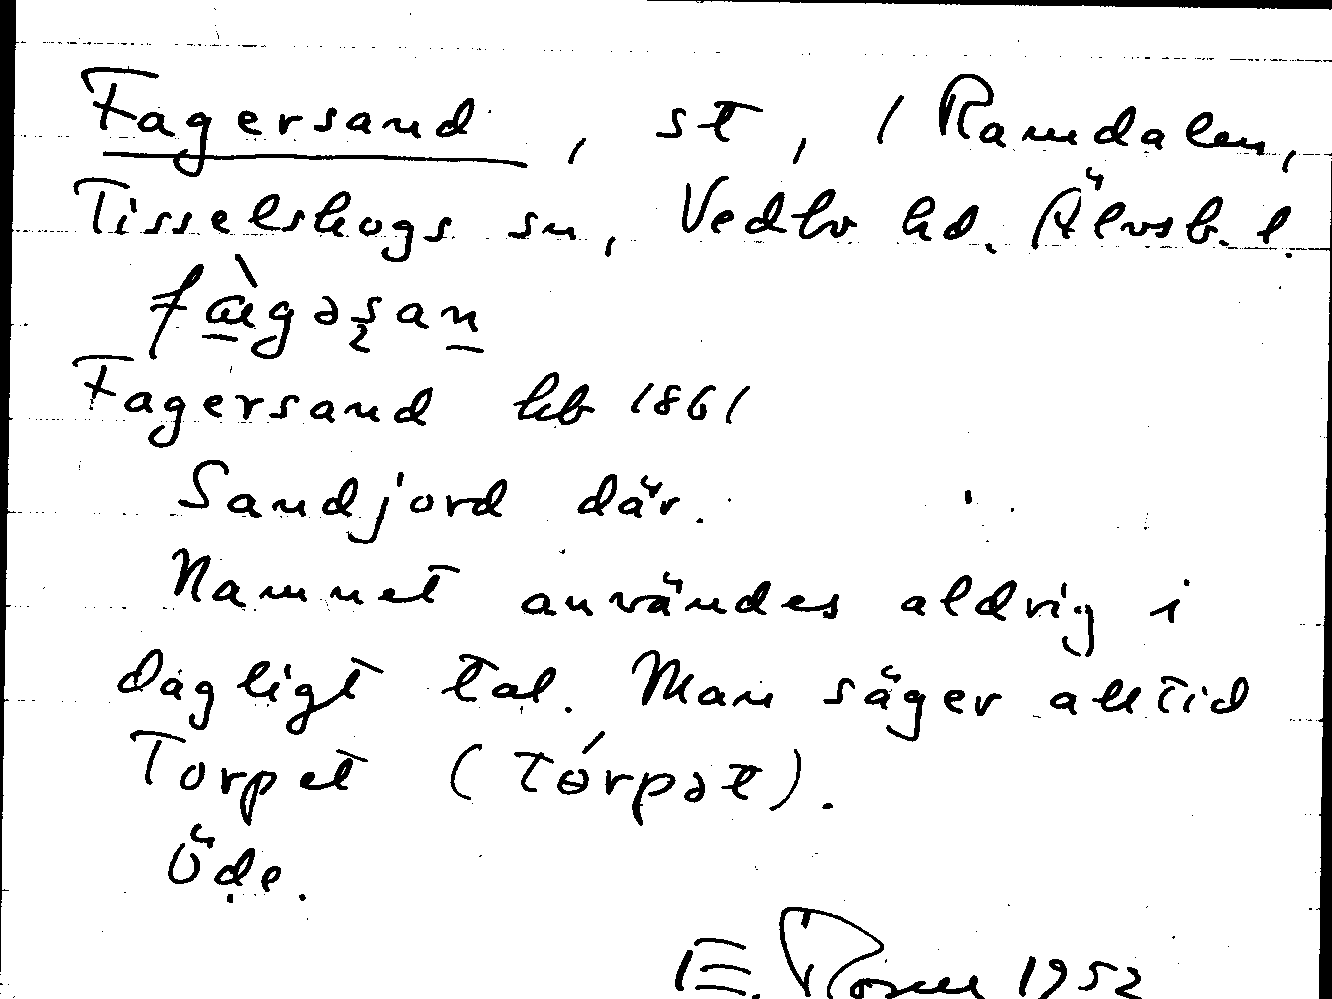 Fagersand, st, 1 Ramdalen,
Tisselskogs sn, Vedbo hd. Älvsb. l.
fàgəsan
Fagersand hb 1861
Sandjord där.
Namnet användes aldrig i
dagligt tal. Man säger alltid
Torpet (tɵ́rpət).
Öde.
E. Rosell 1952